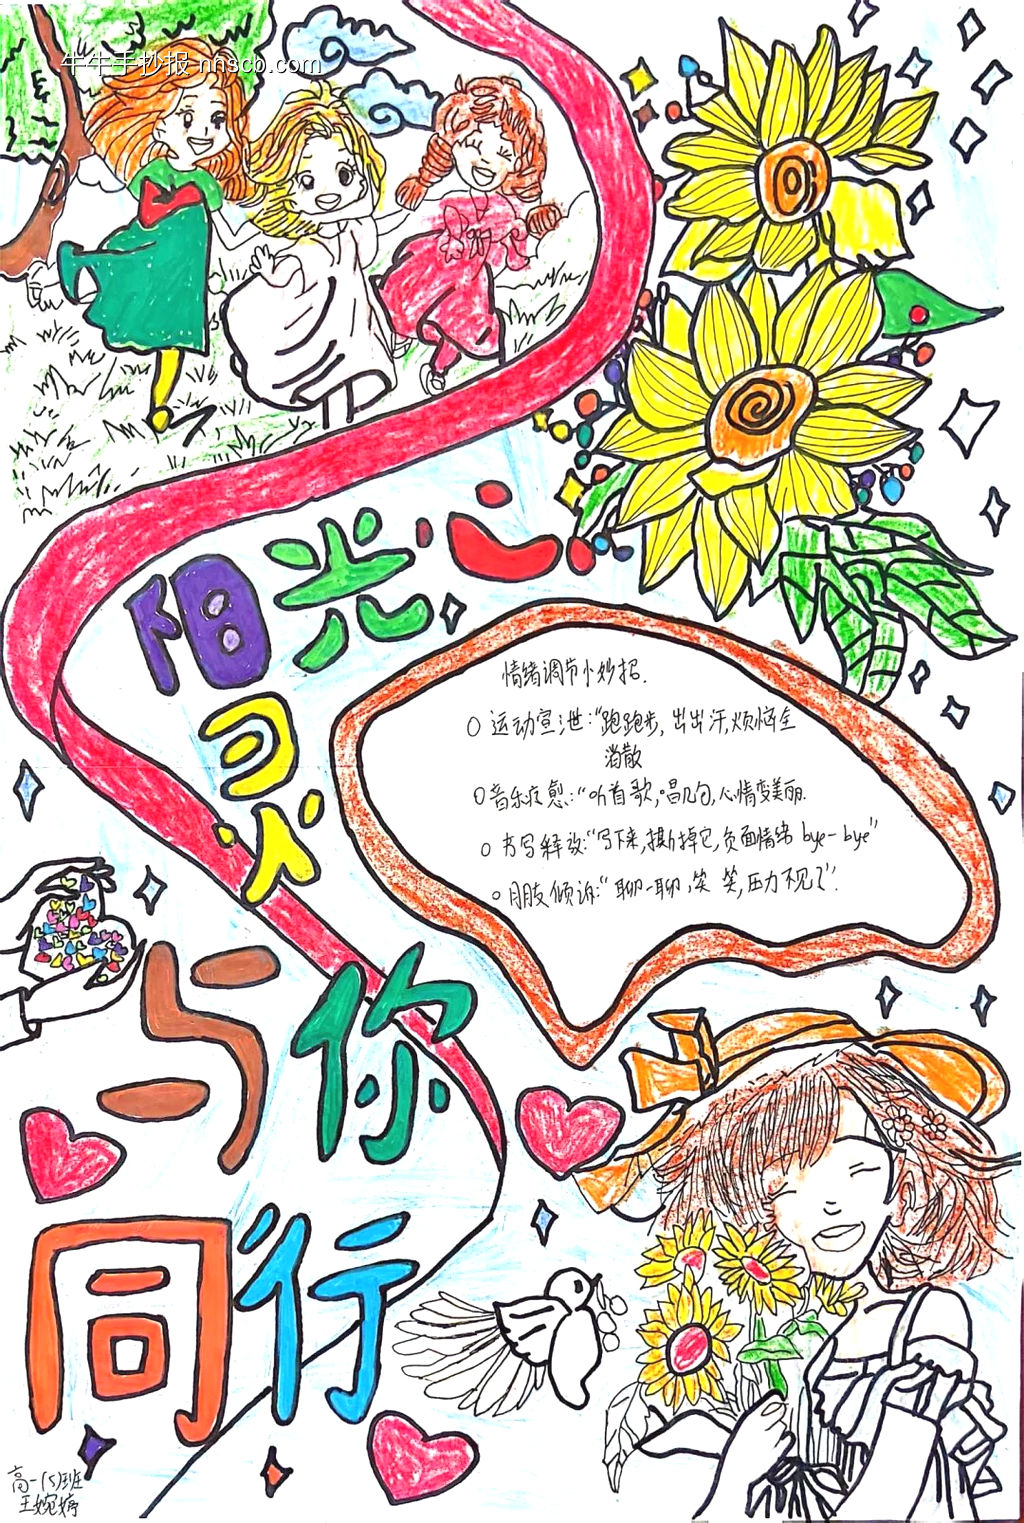 牛牛手抄报 nhscb.com
阳光心
灵
与你
同行
情绪调节小妙招.
○ 运动宣泄:“跑跑步, 出出汗,烦恼全
消散
○ 音乐疗愈:“听首歌,唱几句,心情变美丽.
○ 书写释放:“写下来,撕掉它,负面情绪 bye-bye”
○ 朋友倾诉:“聊一聊,笑一笑,压力不见了”.
高一(5)班
王婉婷